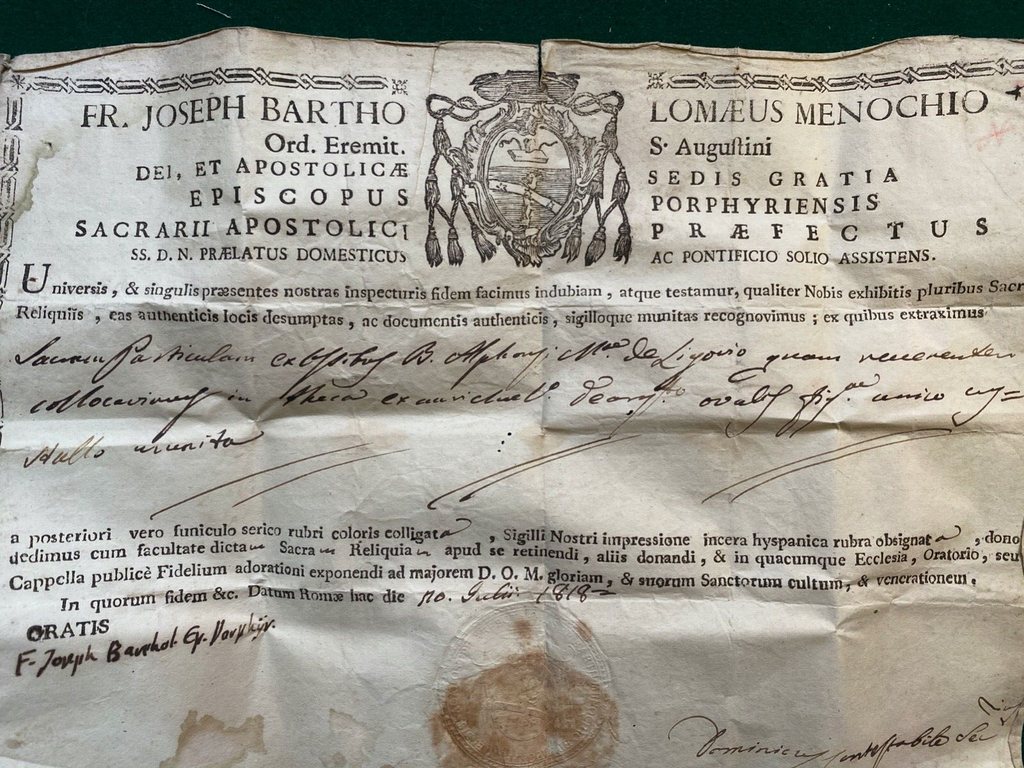 FR. JOSEPH BARTHOLOMÆUS MENOCHIO
Ord. Eremit. S. Auguſtini
DEI, ET APOSTOLICÆ SEDIS GRATIA
EPISCOPUS PORPHYRIENSIS
SACRARII APOSTOLICI PRÆFECTUS
SS. D. N. PRÆLATUS DOMESTICUS AC PONTIFICIO SOLIO ASSISTENS.
Universis, & singulis præsentes nostras inspecturis fidem facimus indubiam, atque testamur, qualiter Nobis exhibitis pluribus Sacr
Reliquiis, eas authenticis locis desumptas, ac documentis authenticis, sigilloque munitas recognovimus; ex quibus extraximus
Sacram Particulam ex Ossibus B. Alphonsi Mae de Ligorio quam reverenter
collocavimus in theca ex aurichal. ovalis figae unico cry=
stallo munita
a posteriori vero funiculo serico rubri coloris colligata, Sigilli Nostri impressione in cera hyspanica rubra obsignata, dono
dedimus cum facultate dictam Sacram Reliquiam apud se retinendi, aliis donandi, & in quacumque Ecclesia, Oratorio, seu
Cappella publicè Fidelium adorationi exponendi ad majorem D. O. M. gloriam, & suorum Sanctorum cultum, & venerationem.
In quorum fidem &c. Datum Romæ hac die 10. Julii 1818
GRATIS
F. Joseph Barthol. Ep. Porphyr.
Dominicus Contestabile Sec